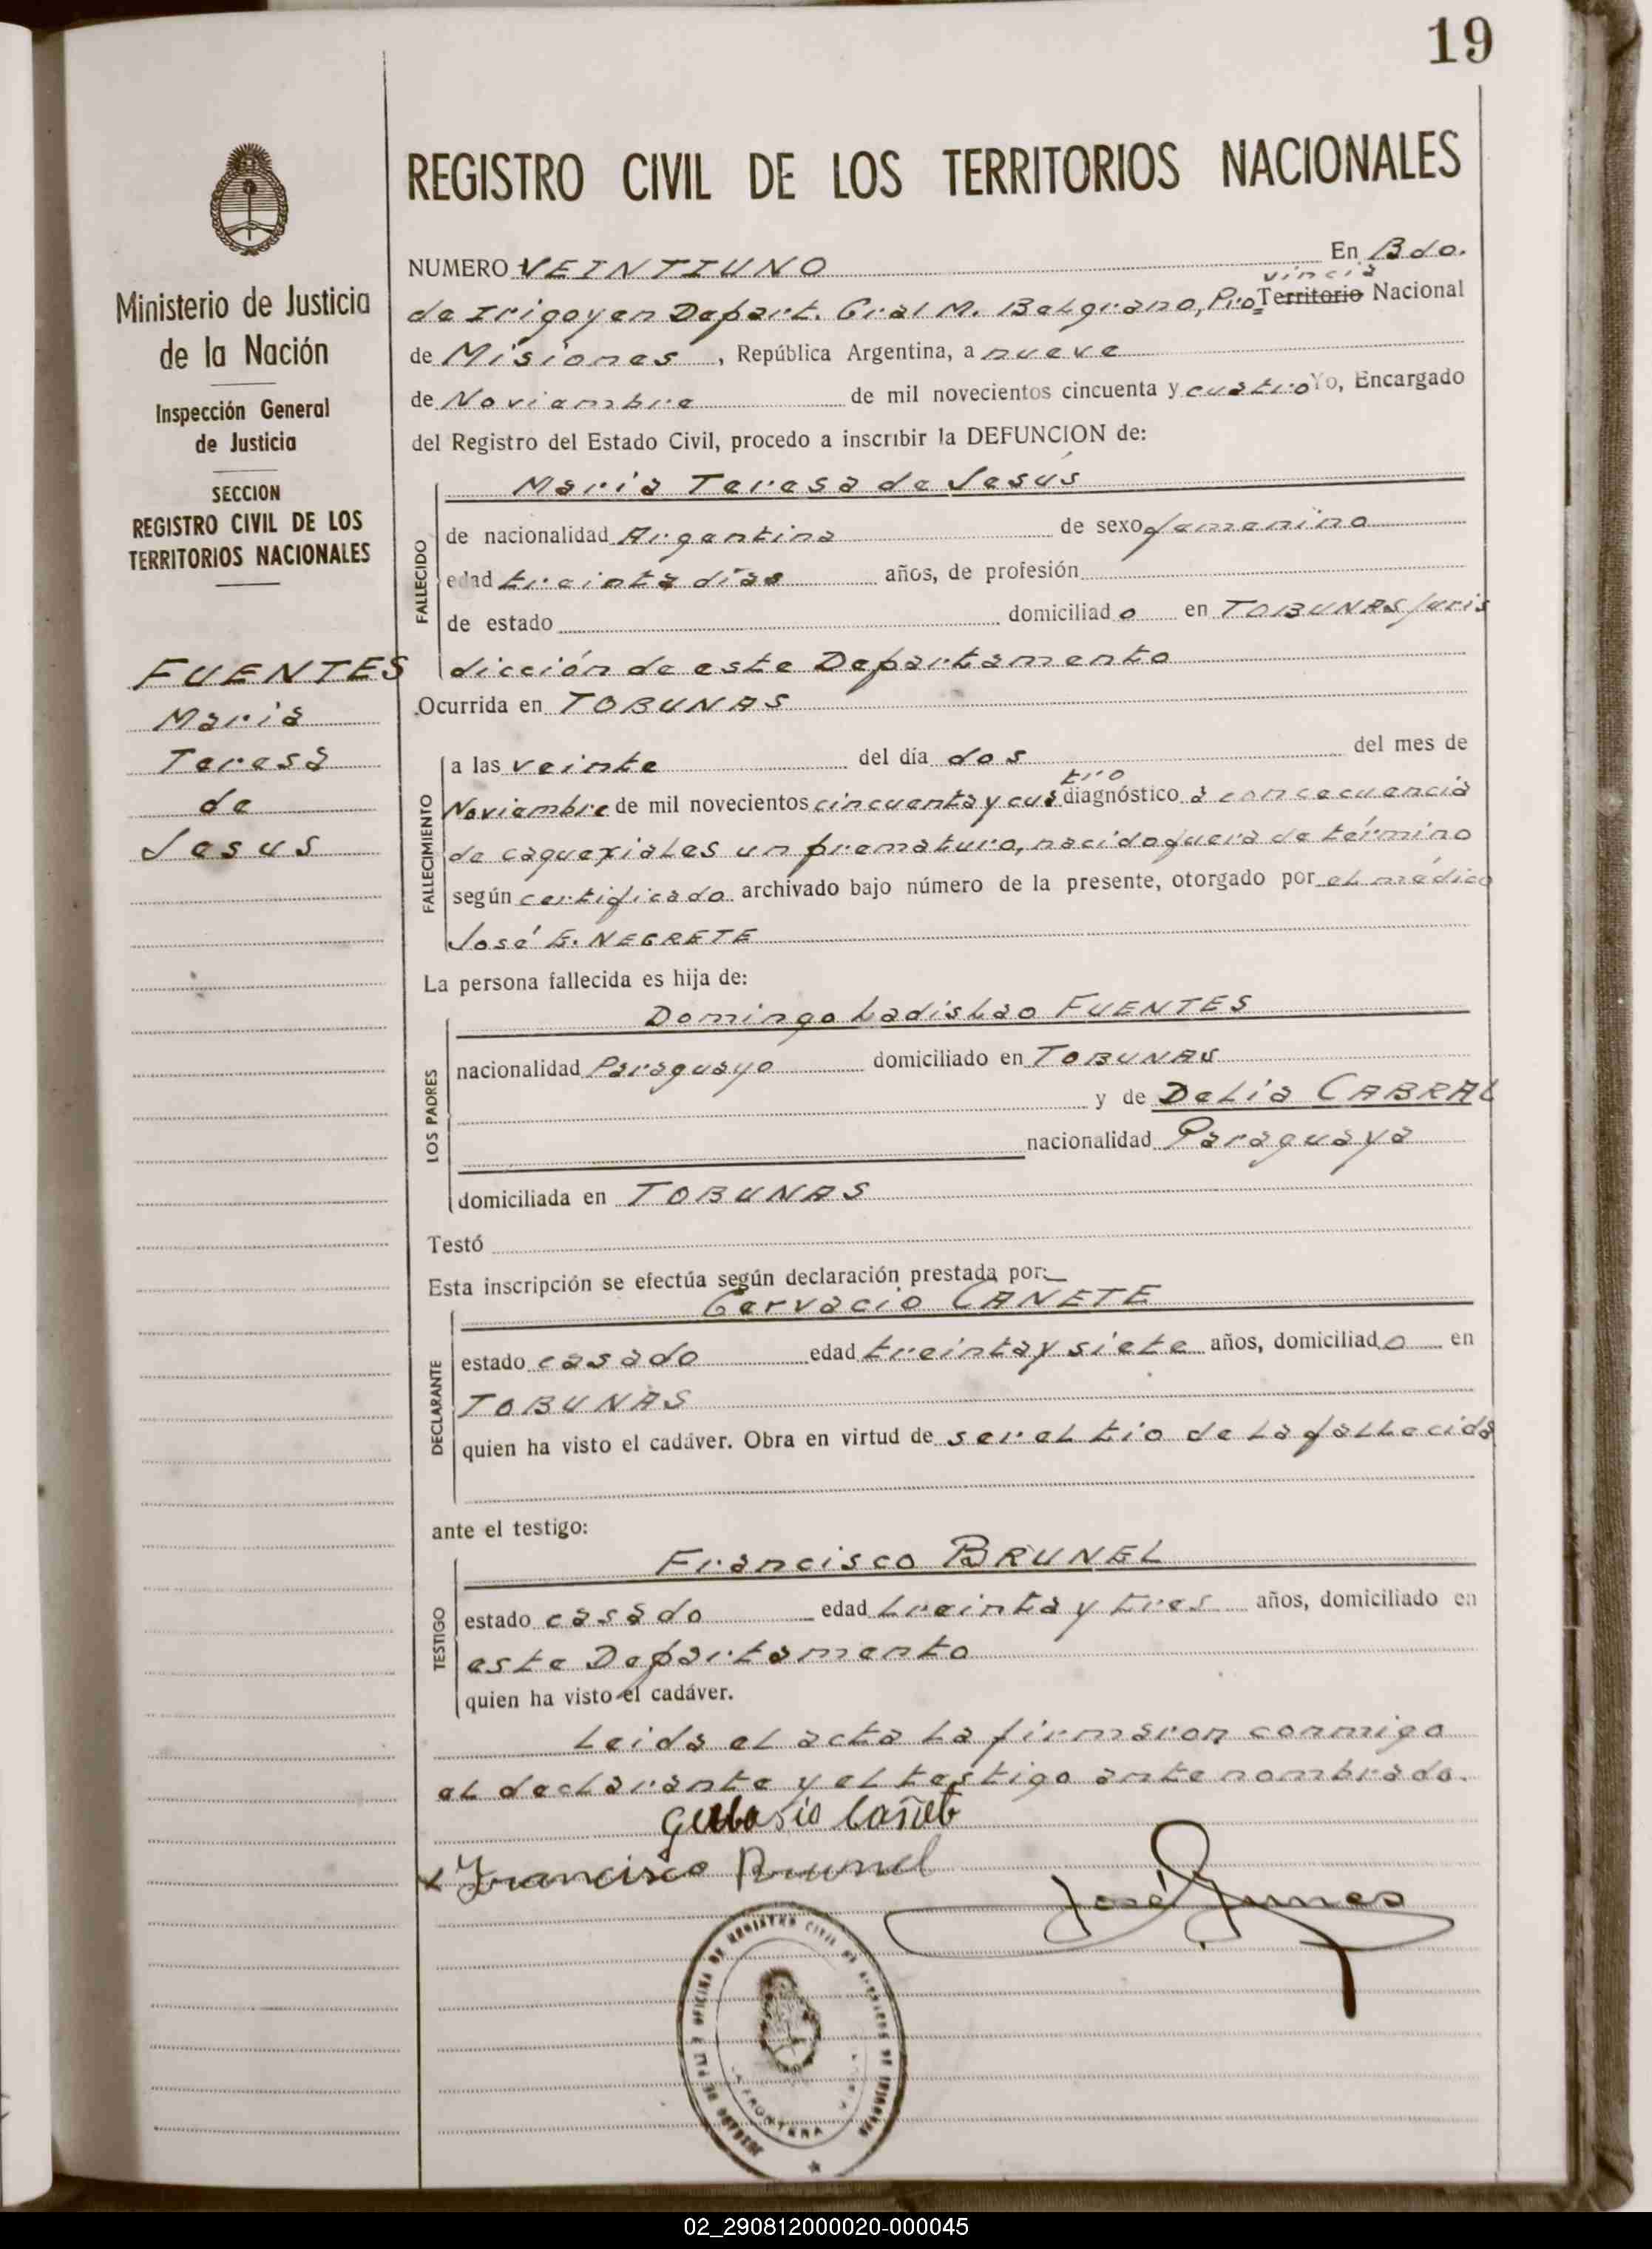 19
REGISTRO CIVIL DE LOS TERRITORIOS NACIONALES
Ministerio de Justicia
de la Nación
Inspección General
de Justicia
SECCION
REGISTRO CIVIL DE LOS
TERRITORIOS NACIONALES
FUENTES
Maria
Teresa
de
Jesus
NUMERO VEINTIUNO En Bdo.
vincia
de Irigoyen Depart. Gral M. Belgrano, Pro= Territorio Nacional
de Misiones, República Argentina, a nueve
de Noviembre de mil novecientos cincuenta y cuatro Yo, Encargado
del Registro del Estado Civil, procedo a inscribir la DEFUNCION de:
Maria Teresa de Jesús
FALLECIDO
de nacionalidad Argentina de sexo femenino
edad treinta días años, de profesión
de estado domiciliado en TOBUNAS juris
dicción de este Departamento
Ocurrida en TOBUNAS
FALLECIMIENTO
a las veinte del día dos del mes de
tro
Noviembre de mil novecientos cincuenta y cua diagnóstico a concecuencia
de caquexiales un prematuro, nacido fuera de término
según certificado archivado bajo número de la presente, otorgado por el médico
José E. NEGRETE
La persona fallecida es hija de:
Domingo Ladislao FUENTES
LOS PADRES
nacionalidad Paraguayo domiciliado en TOBUNAS
y de Delia CABRAL
nacionalidad Paraguaya
domiciliada en TOBUNAS
Testó
Esta inscripción se efectúa según declaración prestada por:
Gervacio CAÑETE
DECLARANTE
estado casado edad treinta y siete años, domiciliado en
TOBUNAS
quien ha visto el cadáver. Obra en virtud de ser el tio de la fallecida
ante el testigo:
Francisco BRUNEL
TESTIGO
estado casado edad treinta y tres años, domiciliado en
este Departamento
quien ha visto el cadáver.
Leida el acta la firmaron conmigo
el declarante y el testigo ante nombrado.
Gerbasio Cañete
Francisco Brunel
José
FRONTERA
02_290812000020-000045